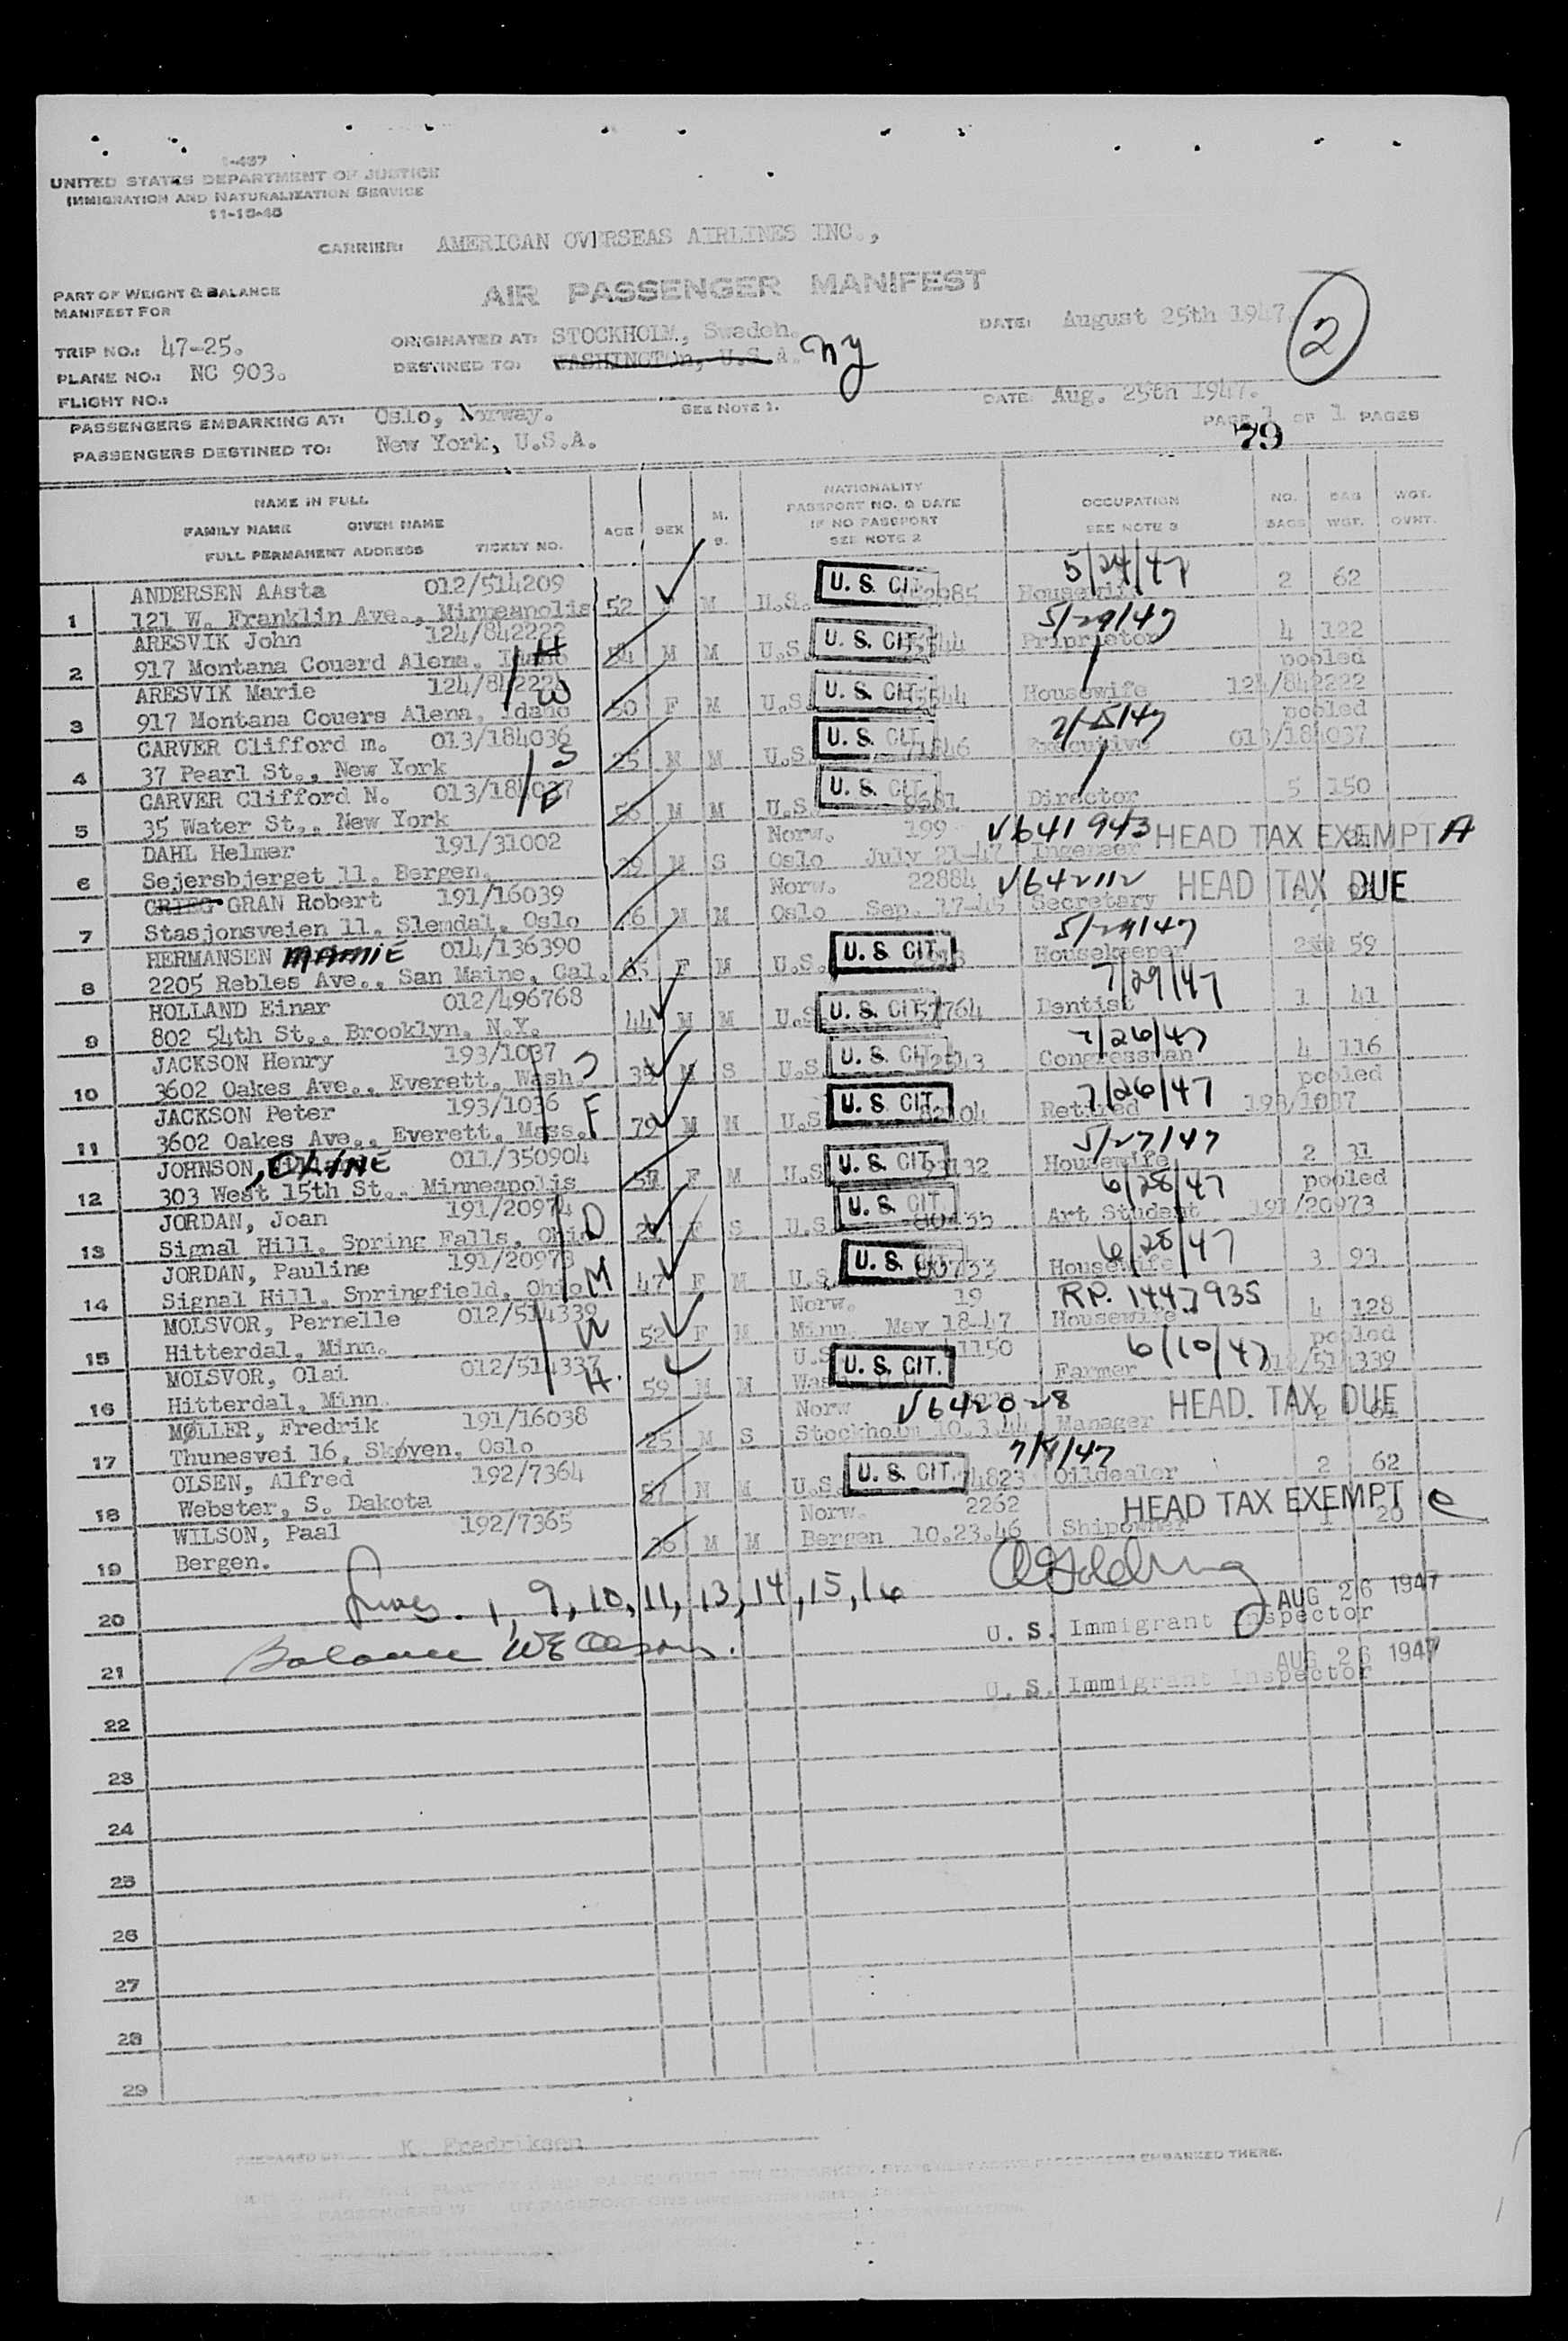 I-457
UNITED STATES DEPARTMENT OF JUSTICE
IMMIGRATION AND NATURALIZATION SERVICE
11-15-45
CARRIER: AMERICAN OVERSEAS AIRLINES INC.,
PART OF WEIGHT & BALANCE
MANIFEST FOR
AIR PASSENGER MANIFEST
TRIP NO.: 47-25.
ORIGINATED AT: STOCKHOLM, Sweden.
DATE: August 25th 1947.
2
PLANE NO.: NC 903.
DESTINED TO: WASHINGTON, U.S.A. NY
FLIGHT NO.:
PASSENGERS EMBARKING AT: Oslo, Norway.
SEE NOTE 1.
DATE: Aug. 25th 1947.
PASSENGERS DESTINED TO: New York, U.S.A.
PAGE 1 OF 1 PAGES
79
NAME IN FULL
FAMILY NAME GIVEN NAME
FULL PERMANENT ADDRESS TICKET NO.
AGE
SEX
M.
S.
NATIONALITY
PASSPORT NO. & DATE
IF NO PASSPORT
SEE NOTE 2
OCCUPATION
SEE NOTE 3
NO.
BAGS
BAG
WGT.
WGT.
OVNT.
ANDERSEN AAsta 012/514209 5/24/47
1 121 W. Franklin Ave., Minneapolis 52 M U.S. U. S. CIT. Housewife 2 62
ARESVIK John 124/842222 5/29/47
2 917 Montana Couerd Alena, Idaho H 54 M M U.S. U. S. CIT. Priprietor 4 122
ARESVIK Marie 124/842221 W pooled
3 917 Montana Couers Alena, Idaho 50 F M U.S. U. S. CIT. Housewife 124/842222
CARVER Clifford m. 013/184036 S 7/15/47 pooled
4 37 Pearl St., New York 25 M M U.S. U. S. CIT. Executive 013/184037
CARVER Clifford N. 013/184037 F
5 35 Water St., New York 56 M M U.S. U. S. CIT. Director 5 150
DAHL Helmer 191/31002 Norw. 199 V641943 HEAD TAX EXEMPT A
6 Sejersbjerget 11. Bergen. 39 M S Oslo July 21-47 Ingeneer
GRIEG GRAN Robert 191/16039 Norw. 22884 V642112 HEAD TAX DUE
7 Stasjonsveien 11. Slemdal, Oslo M M Oslo Sep. 17-45 Secretary
HERMANSEN MAMIE 014/136390 5/29/47
8 2205 Robles Ave., San Maine, Cal. 65 F M U.S. U. S. CIT. Housekeeper 59
HOLLAND Einar 012/496768 7/29/47
9 802 54th St., Brooklyn, N.Y. 44 M M U.S. U. S. CIT. 57764 Dentist 1 41
JACKSON Henry 193/1037 S 7/26/47
10 3602 Oakes Ave., Everett, Wash. 35 M S U.S. U. S. CIT. Congressman 4 116
JACKSON Peter 193/1036 F 7/26/47 pooled
11 3602 Oakes Ave., Everett, Mass. 79 M M U.S. U. S. CIT. Retired 193/1037
JOHNSON, OLINE 011/350904 5/27/47
12 303 West 15th St., Minneapolis F M U.S. U. S. CIT. Housewife 2 31
JORDAN, Joan 191/20974 D 6/28/47 pooled
13 Signal Hill, Spring Falls, Ohio F S U.S. U. S. CIT. Art Student 191/20973
JORDAN, Pauline 191/20973 M 6/28/47
14 Signal Hill, Springfield, Ohio 47 F M U.S. U. S. CIT. Housewife 3 93
MOLSVOR, Pernelle 012/514339 W Norw. 19 RP. 1447935
15 Hitterdal, Minn. 52 F M Minn. May 18-47 Housewife 4 128
MOLSVOR, Olai 012/514337 H. U.S. 1150 6/10/47 pooled
16 Hitterdal, Minn. 59 M M U. S. CIT. Farmer 012/514339
MØLLER, Fredrik 191/16038 Norw V642028 HEAD. TAX DUE
17 Thunesvei 16, Skøyen, Oslo 25 M S Stockholm 10.3.44 Manager 2
OLSEN, Alfred 192/7364 7/9/47
18 Webster, S. Dakota 57 M M U.S. U. S. CIT. 4823 Oildealer 2 62
WILSON, Paal 192/7365 Norw. 2262 HEAD TAX EXEMPT C
19 Bergen. 36 M M Bergen 10.23.46 Shipowner 1 20
20 1, 9, 10, 11, 13, 14, 15, 16 AUG 26 1947
U. S. Immigrant Inspector
21 Balance AUG 26 1947
U. S. Immigrant Inspector
22
23
24
25
26
27
28
29
PREPARED BY K. Fredriksen
PASSENGERS EMBARKED THERE.